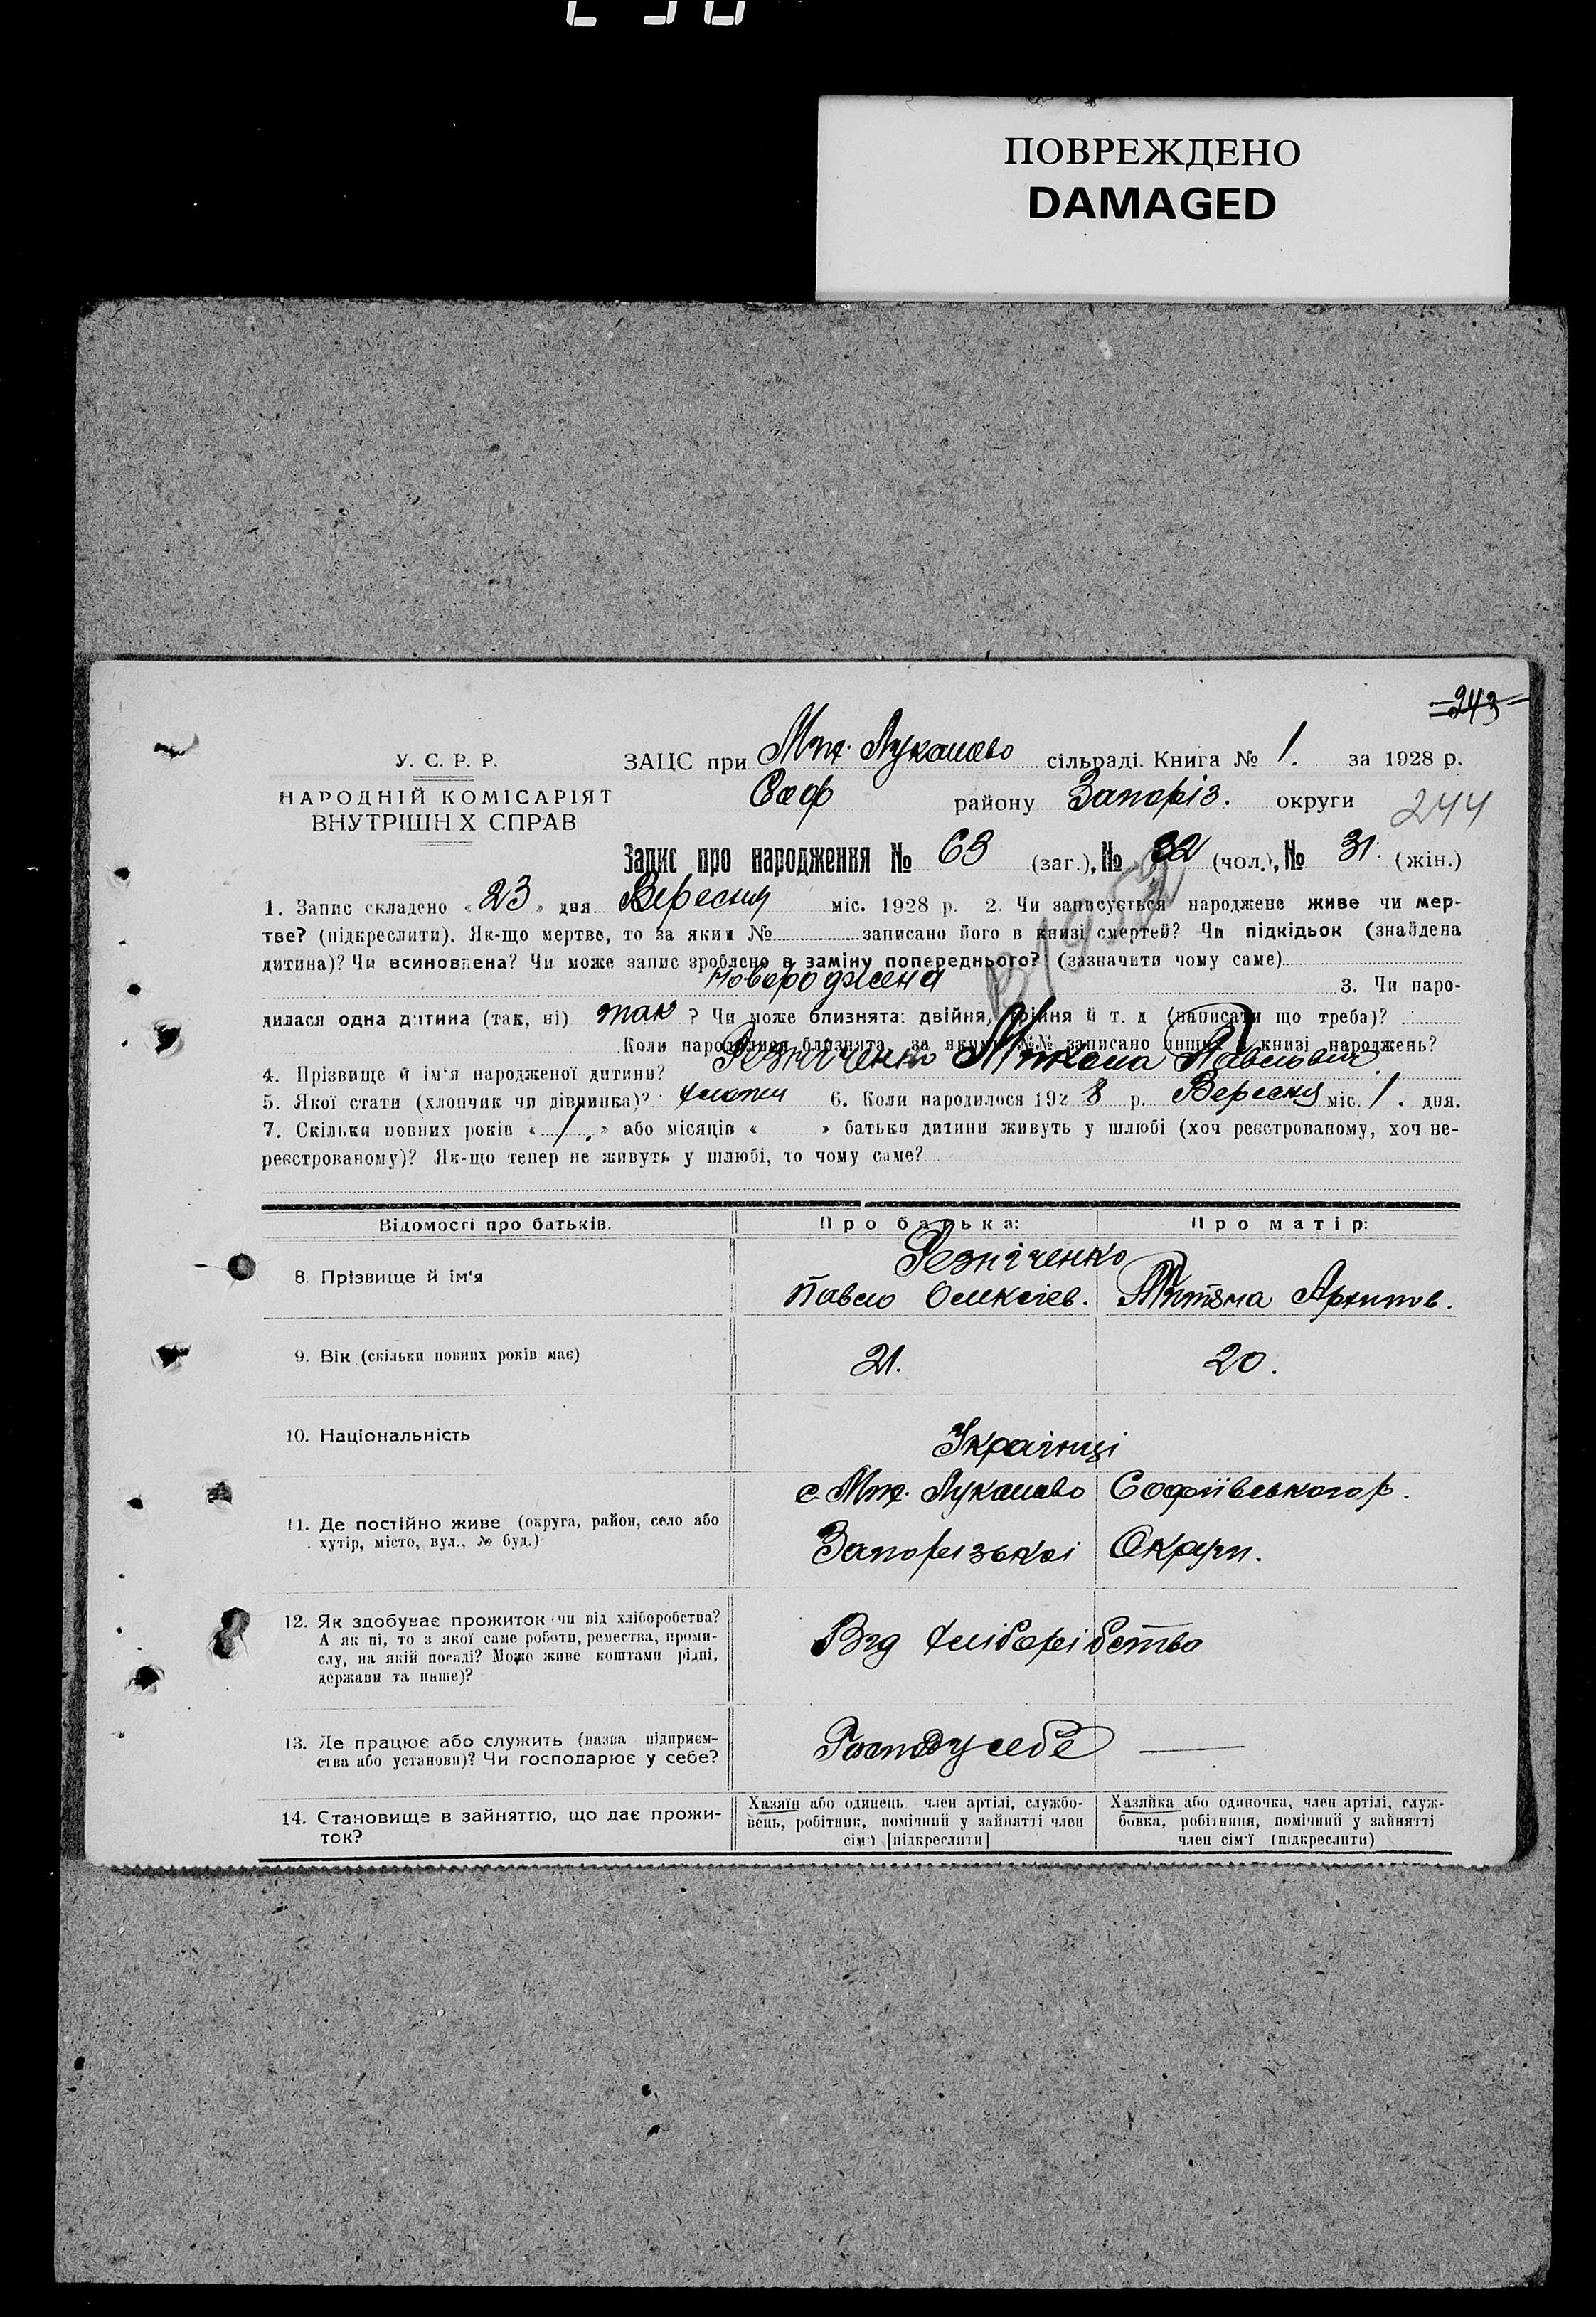 ПОВРЕЖДЕНО
DAMAGED
=243=
У. С. Р. Р.
НАРОДНІЙ КОМІСАРІЯТ
ВНУТРІШН Х СПРАВ
ЗАЦС при Мих. Лукашево сільраді. Книга № 1. за 1928 р.
Соф району Запоріз. округи
244
Запис про народження № 63 (заг.), № 32 (чол.), № 31. (жін.)
1. Запис складено «23» дня Вересня міс. 1928 р. 2. Чи записується народжене живе чи мер-
тве? (підкреслити). Як-що мертве, то за яким № записано його в книзі смертей? Чи підкідьок (знайдена
дитина)? Чи всиновлена? Чи може запис зроблено в заміну попереднього? (зазначити чому саме)
новороджена 3. Чи наро-
дилася одна дитина (так, ні) так ? Чи може близнята: двійня, трійня й т. д (написати що треба)?
Коли народилися близнята, за якими №№ записано инших в книзі народжень?
4. Прізвище й ім'я народженої дитини? Резніченко Микола Павлович
5. Якої стати (хлопчик чи дівчинка)? хлопч 6. Коли народилося 1928 р. Вересня міс. 1. дня.
7. Скільки повних років «1.» або місяців « » батьки дитини живуть у шлюбі (хоч реєстрованому, хоч не-
реєстрованому)? Як-що тепер не живуть у шлюбі, то чому саме?
Відомості про батьків. Про батька: Про матір:
Резніченко
8. Прізвище й ім'я Павло Олексієв. Тітяна Архипов.
9. Вік (скільки повних років має) 21. 20.
10. Національність Українці
с Мих. Лукашево Софіївського р.
11. Де постійно живе (округа, район, село або
хутір, місто, вул., № буд.) Запорізької Округи.
12. Як здобуває прожиток чи від хліборобства?
А як ні, то з якої саме роботи, ремества, проми-
слу, на якій посаді? Може живе коштами рідні,
держави та инше)?
Від хліборібства
13. Де працює або служить (назва підприєм-
ства або установи)? Чи господарює у себе?
Госпд у себе —
14. Становище в зайняттю, що дає прожи-
ток?
Хазяїн або одинець член артілі, службо-
вець, робітник, помічний у зайнятті член
сім'ї [підкреслити]
Хазяйка або одиночка, член артілі, служ-
бовка, робітниця, помічний у зайнятті
член сім'ї (підкреслити)